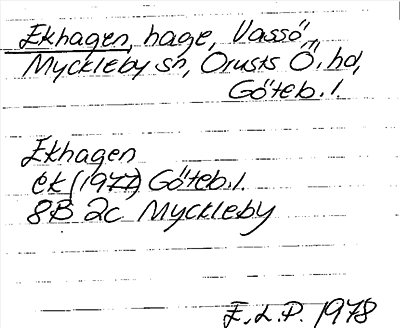 Ekhagen, hage, Vassö,
Myckleby sn, Orusts Ö. hd,
Göteb. l.
Ekhagen
ek (1977) Göteb. l.
8B 2c Myckleby
E.L.P. 1978